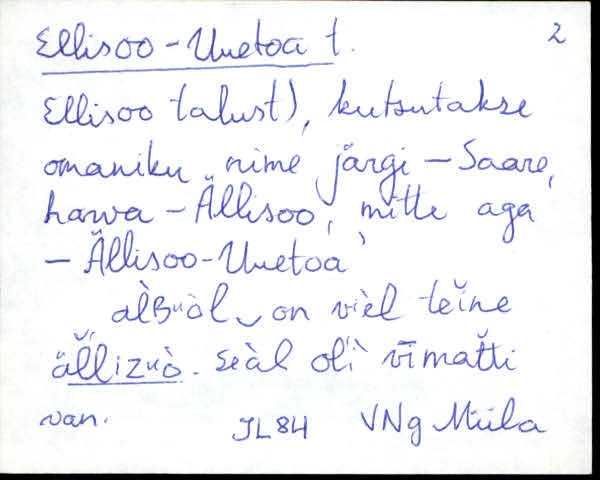 Ellisoo-Uuetoa t. 2
Ellisoo talust), kutsutakse
omaniku nime järgi – Saare,
harva – Ällisoo, mitte aga
– Ällisoo-Uuetoa
àlBuòl on vièl teĭne
äĺĺizuò. seàl olì v̄imat̆ti
van. JL84 VNg Miila